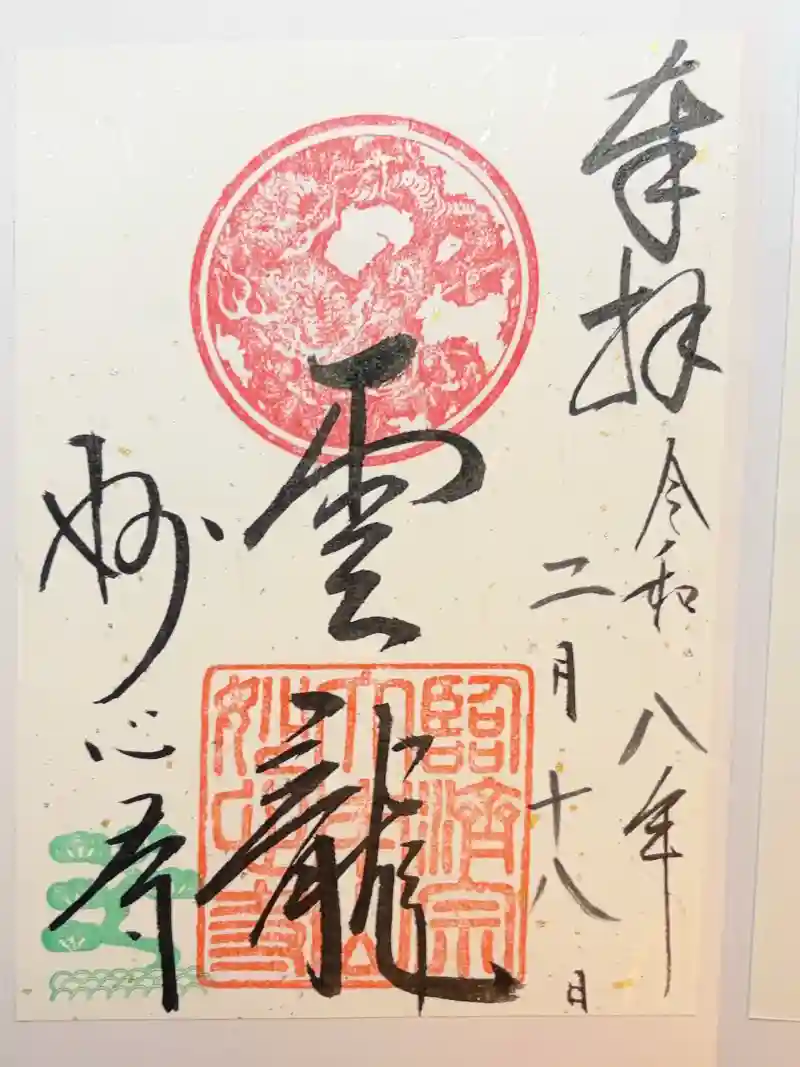 奉拝
令和八年
二月十八日
雲龍
臨済宗
大本山
妙心寺
妙心寺